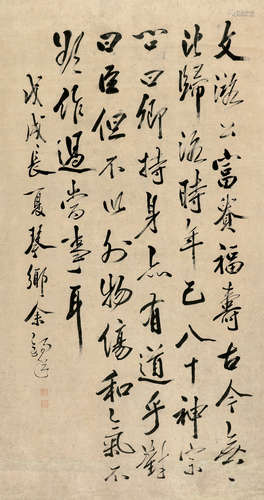 文潞公富貴福壽古今無
比歸洛時年已八十神宗
問曰卿持身亦有道乎對
曰臣但不以外物傷和氣不
敢作過當事耳
戊戌長夏琴鄉余